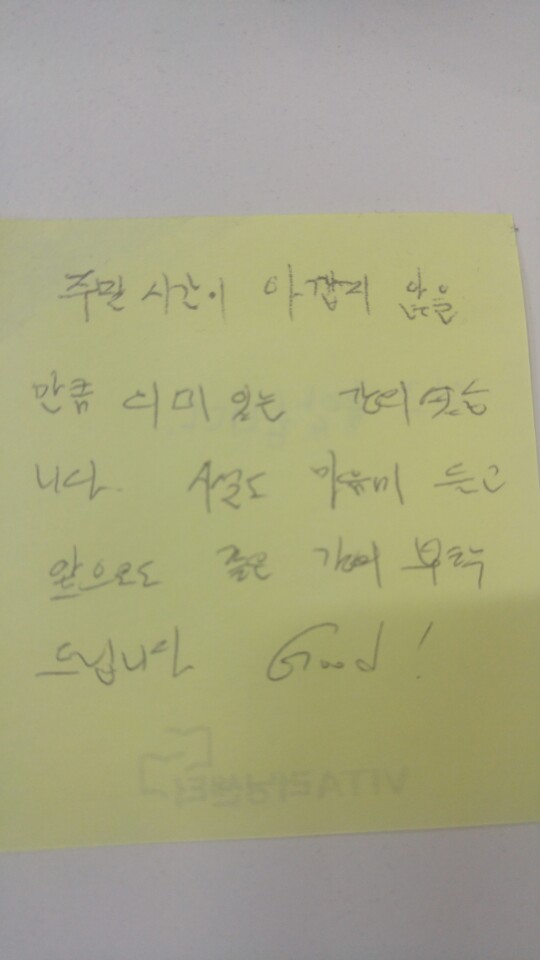 주말 시간이 아깝지 않을
만큼 의미 있는 강의 였습
니다. 시설도 마음에 들고
앞으로도 좋은 강의 부탁
드립니다 Good!